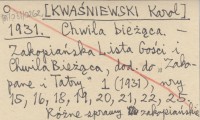 [KWAŚNIEWSKI Karol]
1931. Chwila bieżąca. –
Zakopiańska Lista Gości i
Chwila Bieżąca, dod. do „Zako-
pane i Tatry" 1 (1931), nry
15, 16, 18, 19, 20, 21, 22, 25.
Różne sprawy zakopiańskie